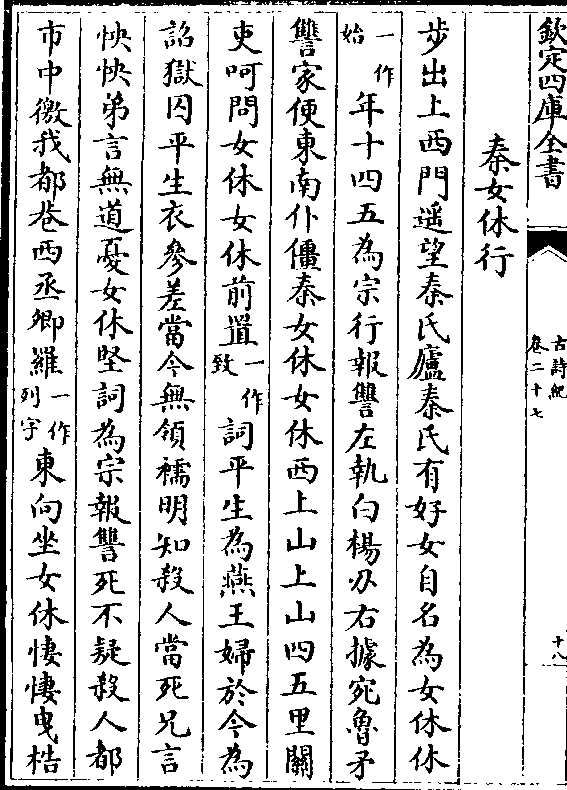 欽定四庫全書
古詩紀
卷二十七
十八
秦女休行
步出上西門遥望秦氏廬秦氏有好女自名為女休休
一作始年十四五為宗行報讐左執白楊刃右據宛魯矛
讐家便東南仆僵秦女休女休西上山上山四五里關
吏呵問女休女休前置一作致詞平生為燕王婦於今為
詔獄囚平生衣參差當今無領襦明知殺人當死兄言
怏怏弟言無道憂女休堅詞為宗報讐死不疑殺人都
市中徼我都巷西丞卿羅一作列字東向坐女休悽悽曳梏